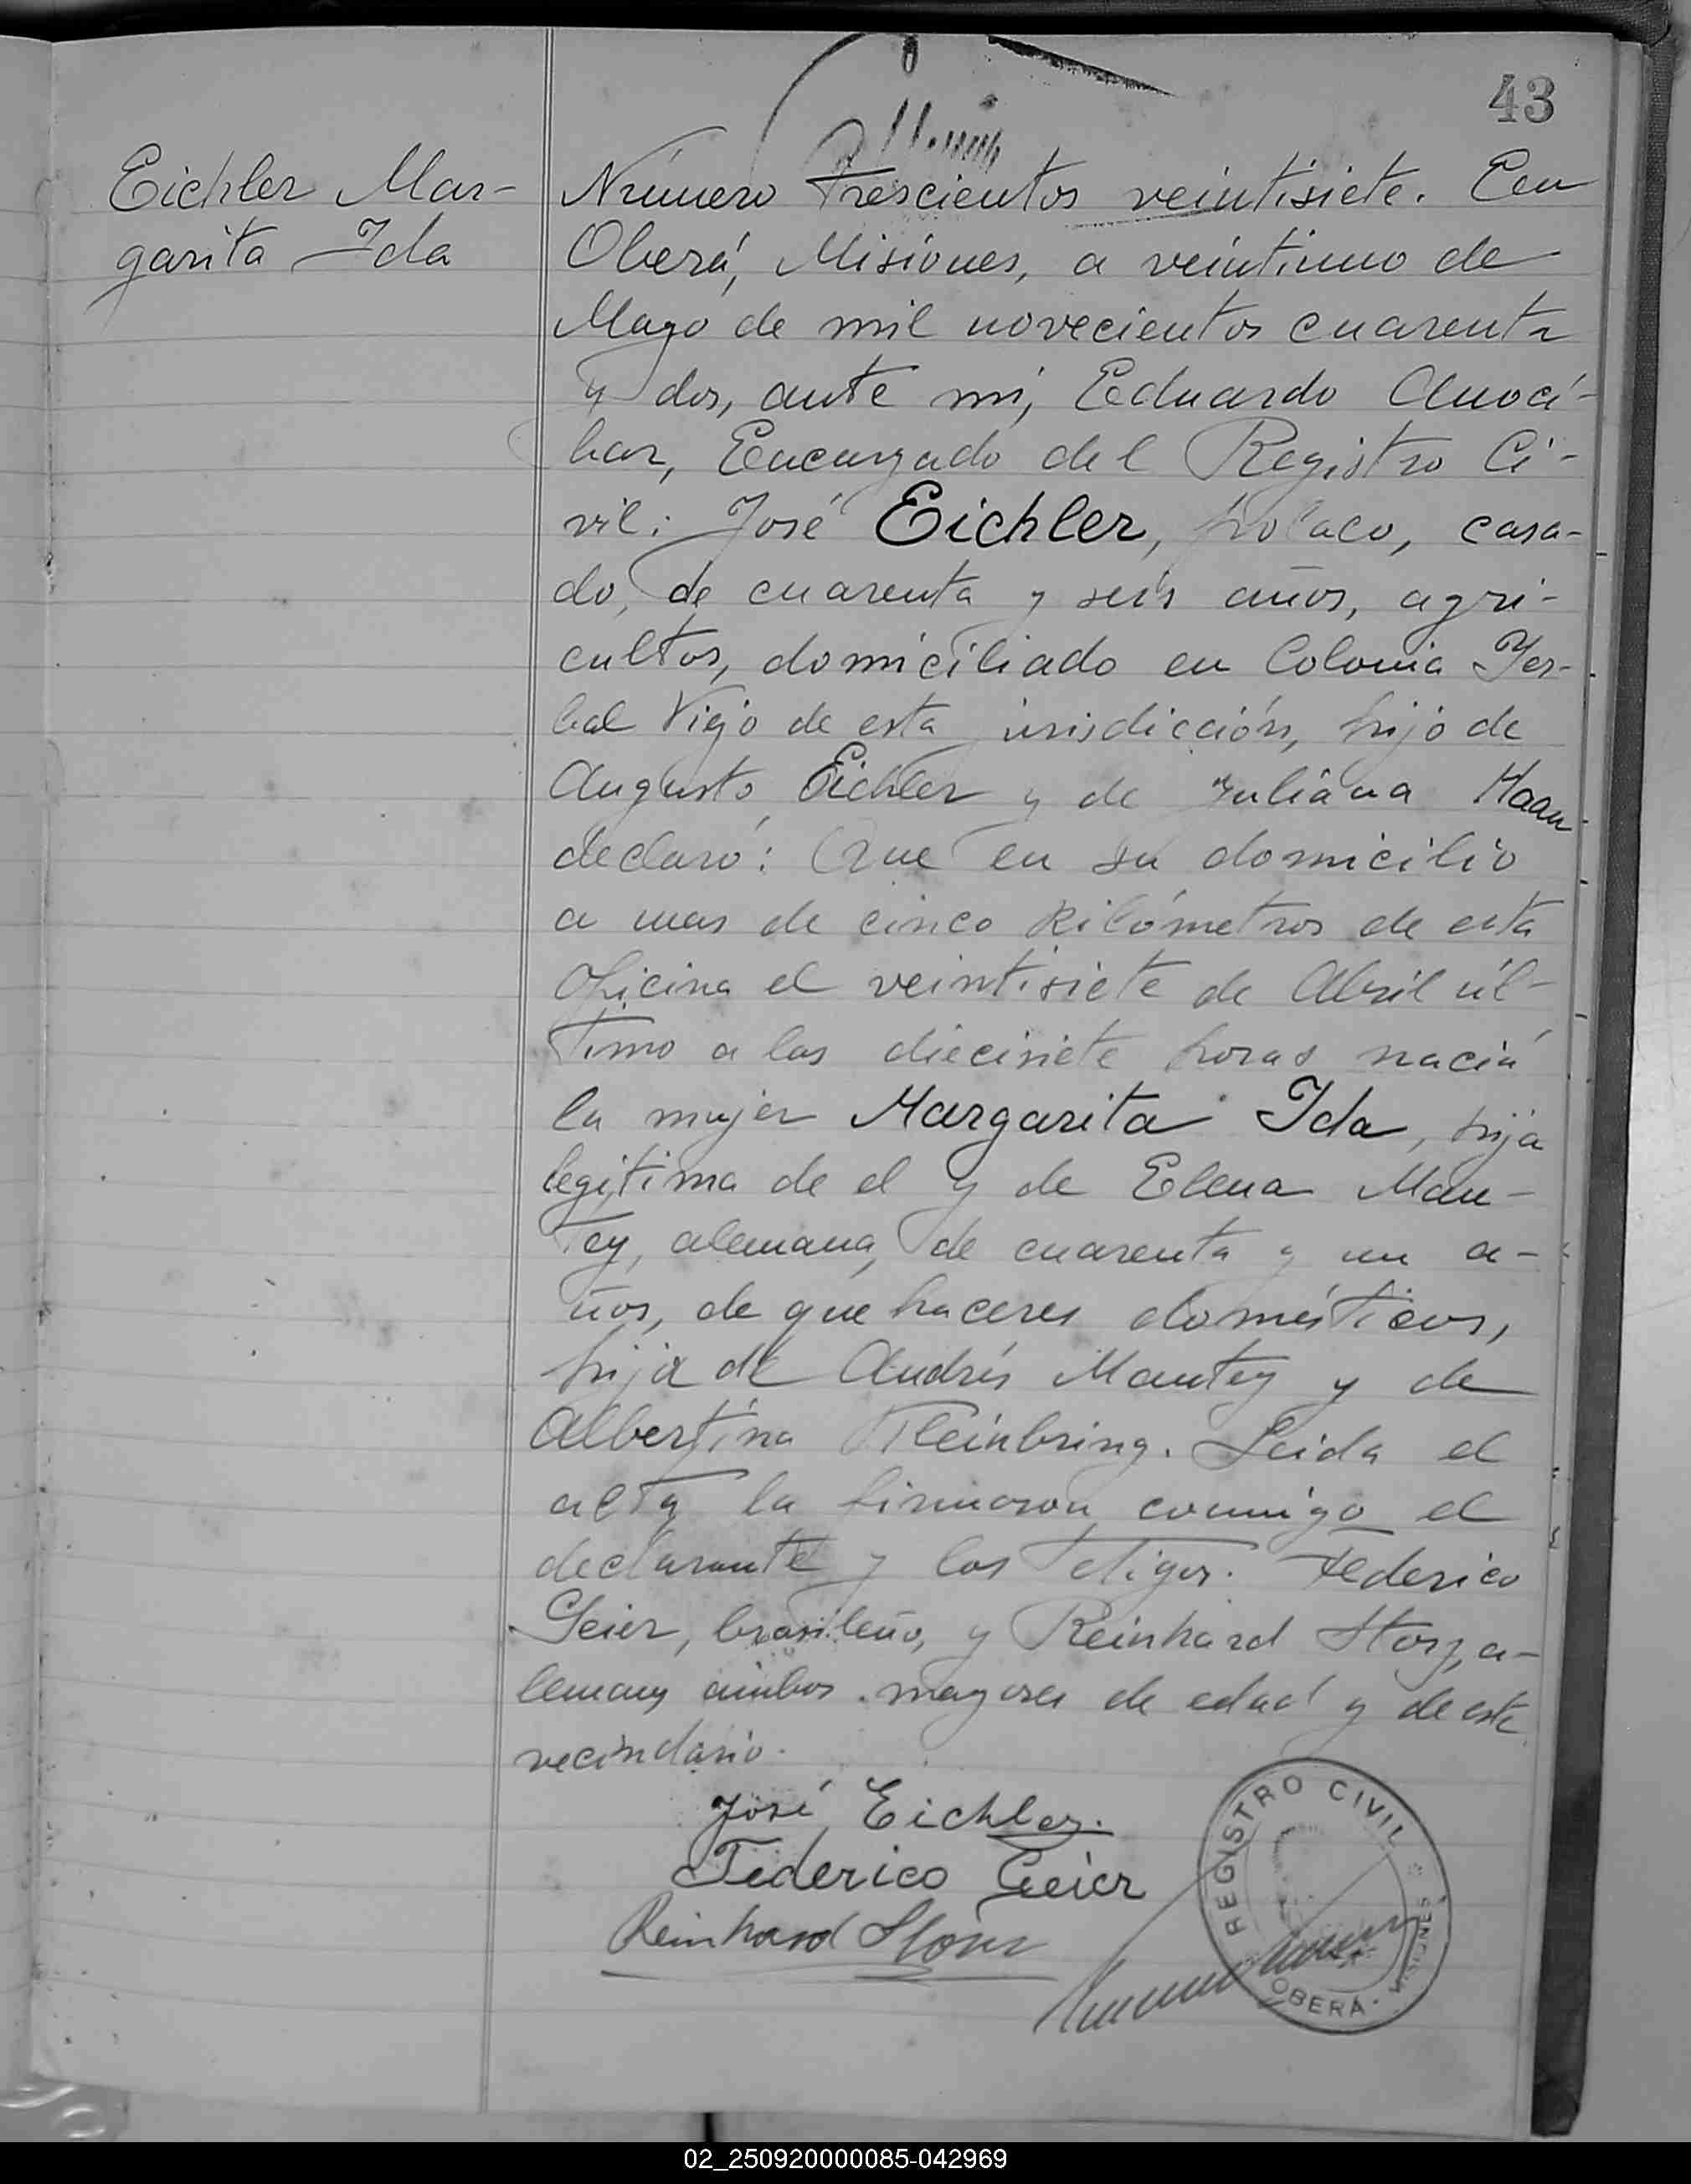 43
Eichler Mar-
garita Ida
Número trescientos veintisiete. En
Oberá, Misiones, a veintiuno de
Mayo de mil novecientos cuarenta
y dos, ante mi, Eduardo Anocí-
bar, Encargado del Registro Ci-
vil: José Eichler, polaco, casa-
do, de cuarenta y seis años, agri-
cultor, domiciliado en Colonia Yer-
bal Viejo de esta jurisdicción, hijo de
Augusto Eichler y de Juliana Haan
declaró: Que en su domicilio
a mas de cinco kilómetros de esta
oficina el veintisiete de Abril úl-
timo a las diecisiete horas nació
la mujer Margarita Ida, hija
legitima de el y de Elena Man-
tey, alemana, de cuarenta y un a-
ños, de que haceres domésticos,
hija de Andrés Mantey y de
Albertina Kleinbring. Leida el
acta la firmaron conmigo el
declarante y los tetigos. Federico
Geier, brasileño, y Reinhard Storz, a-
leman, ambos mayores de edad y de este
vecindario.
José Eichler.
Federico Geier
Reinhard Storz
REGISTRO CIVIL
OBERÁ - MISIONES
02_250920000085-042969